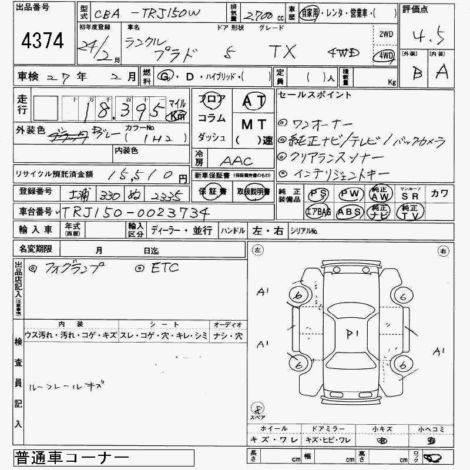 出品番号
4374
型式 CBA-TRJ150W 排気量 2,700cc 車歴 自家用・レンタ・営業車・( ) 評価点
初年度登録 24/2月 車名 ランクルプラド ドア 形状 5 グレード TX 4WD 2WD 4WD 4.5
車検 27年 2月 燃料 G・D・ハイブリッド・( ) 定員 ( )人 積載量 Kg 内 B 外 A
走行 18,395 マイル Km フロア コラム ダッシュ AT MT ( )速
セールスポイント
外装色 カラーNo ( 1H2 )
内装色 冷房 AAC
◎ワンオーナー
◎純正ナビ/テレビ/バックカメラ
◎クリアランスソナー
◎インテリジェントキー
リサイクル預託済金額 15,510円 新車保証書 保証書 取扱説明書
登録番号 土浦 330 ぬ 2335 純正装備品 PS PW 純正AW サンルーフ SR カワ
車台番号 TRJ150-0023734 エアBAG ABS 純正ナビ 純正TV
輸入車 年式 輸入区分 ディーラー・並行 ハンドル 左・右 シリアルNo.
名変期限 月 日迄
出品店記入
◎フォグランプ ◎ETC
内装 シート オーディオ
ウス汚れ・汚れ・コゲ・キズ スレ・コゲ・穴・キレ・シミ ナシ・穴
検査員記入
ルーフレールキズ
左 右
A1 A1
6 6
P1
A1 A1
6 6
スペア
ホイール ドアミラー 小キズ 小ヘコミ
キズ・ワレ キズ・ヒビ・ワレ
長さ cm 幅 cm 高さ cm
普通車コーナー